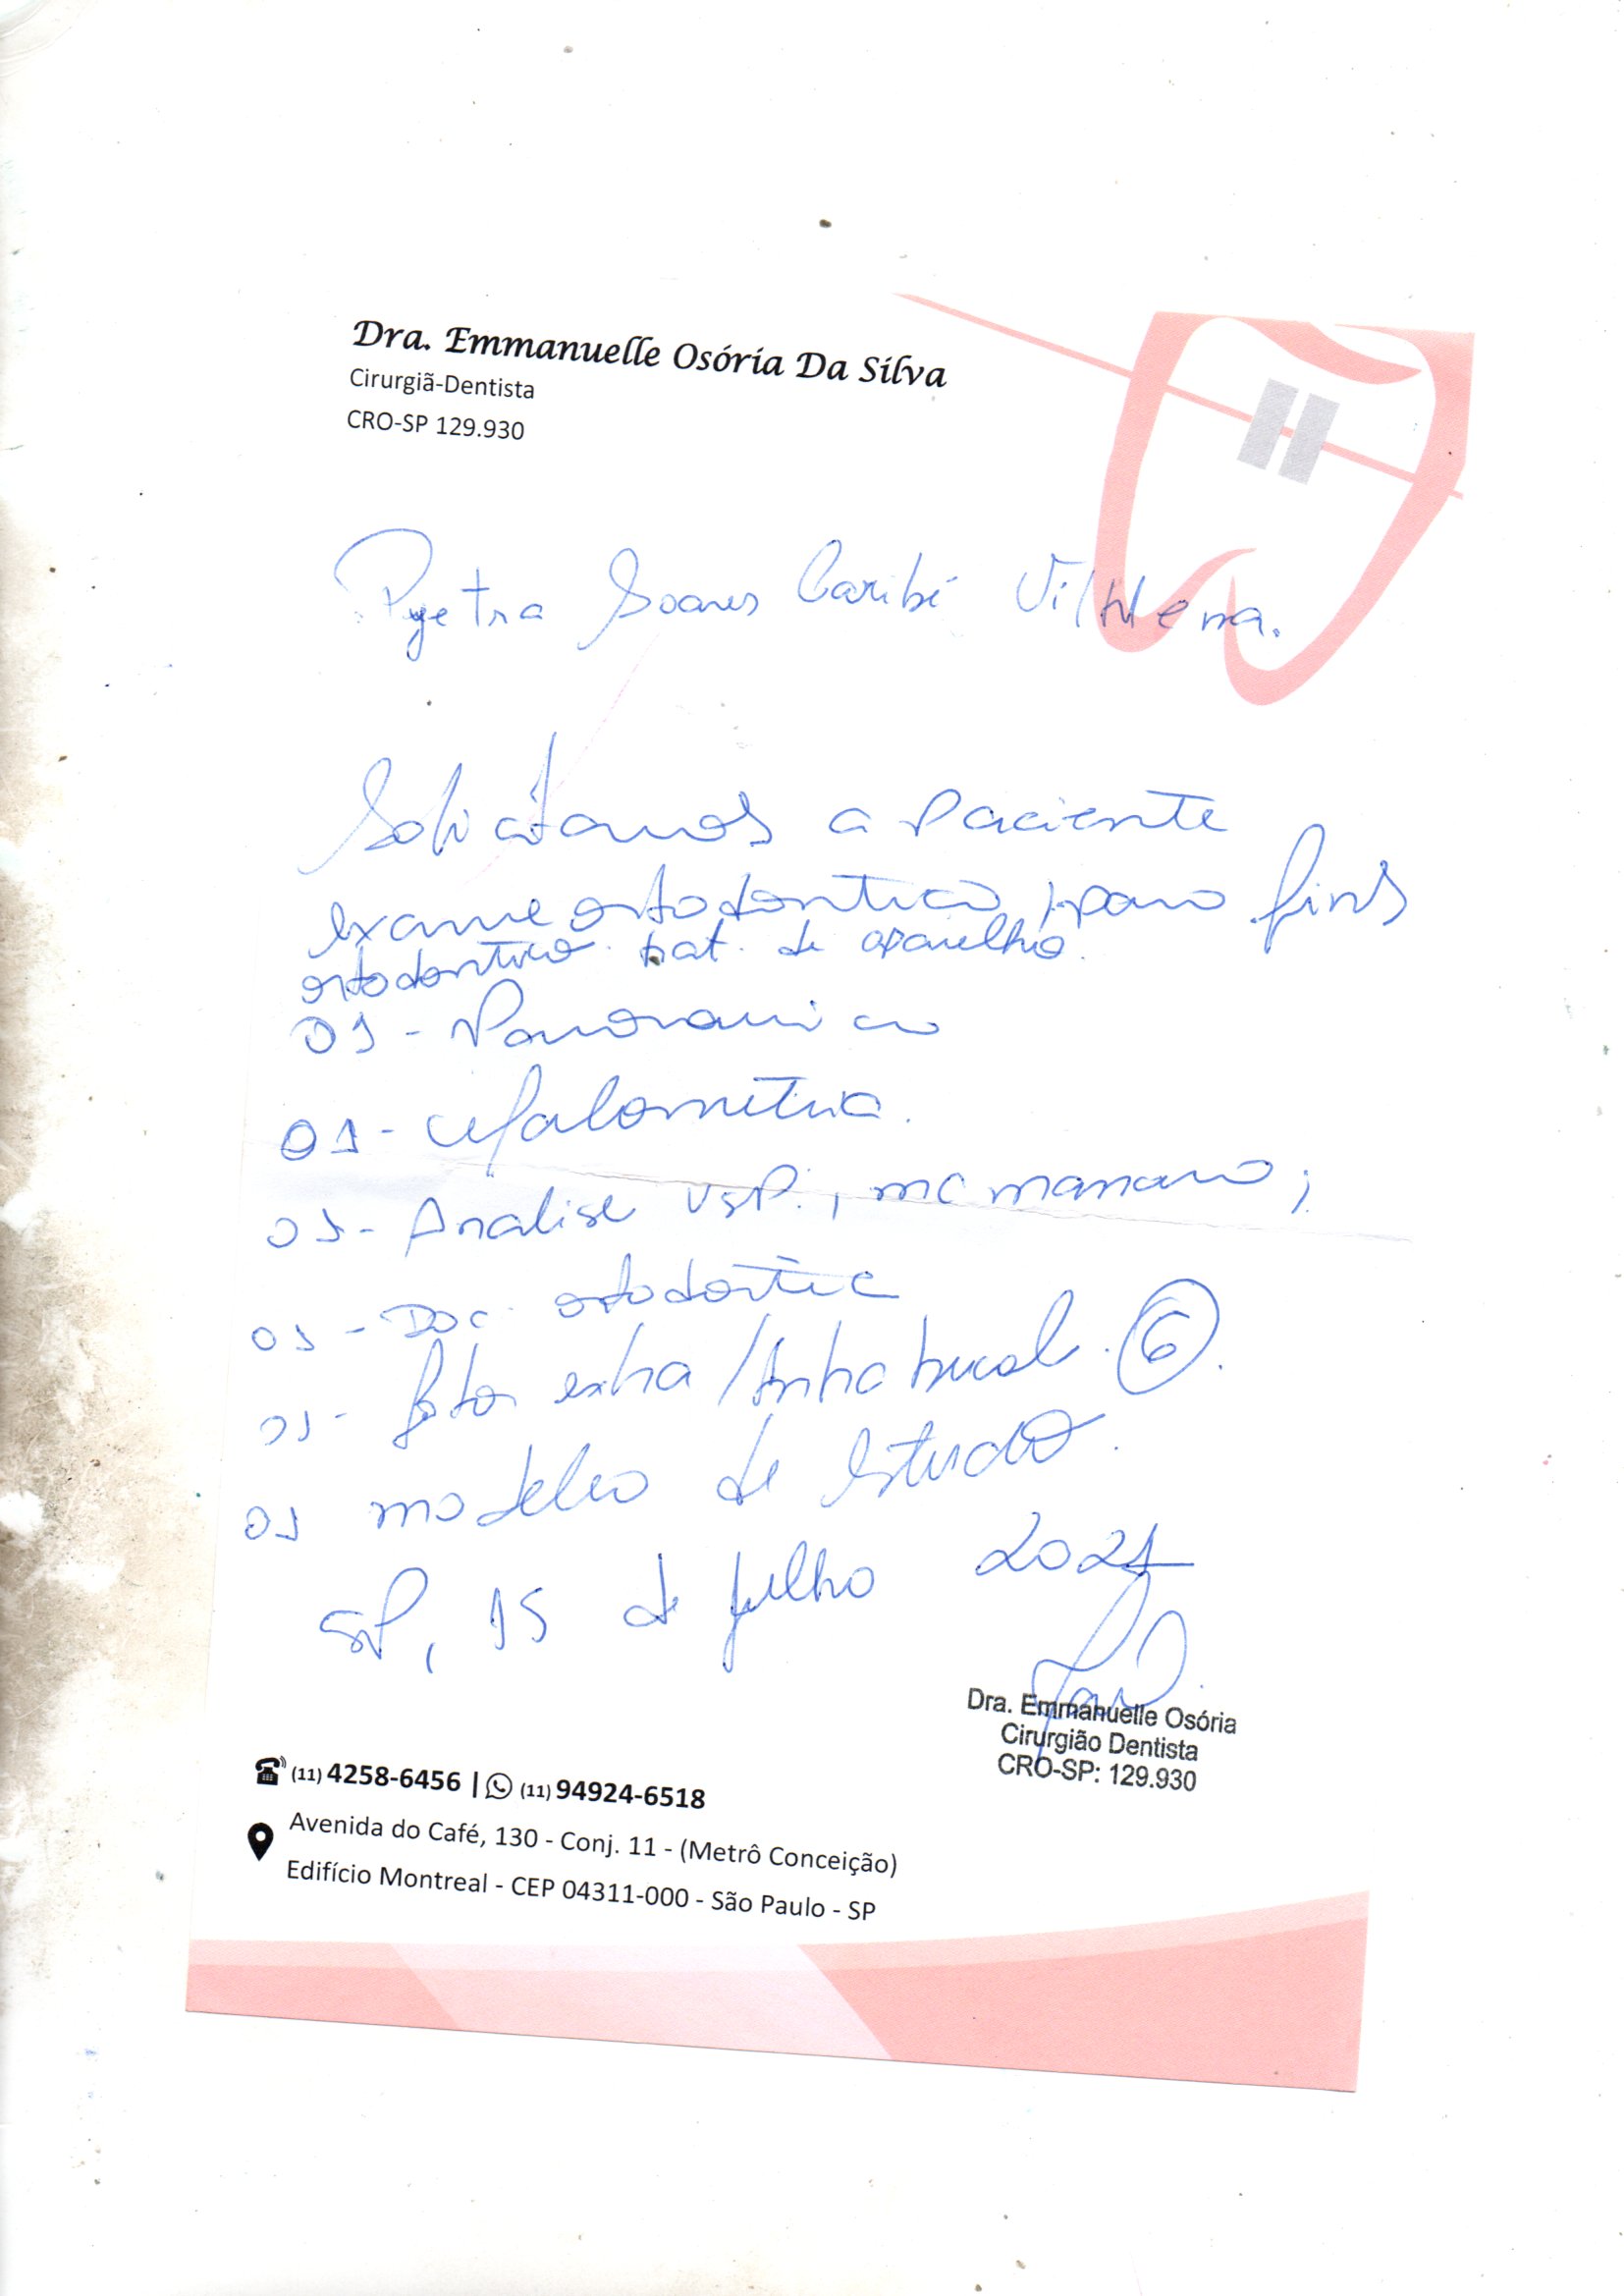 Dra. Emmanuelle Osória Da Silva
Cirurgiã-Dentista
CRO-SP 129.930
Pyetra Soares Caribé Vilhena.
Solicitamos a Paciente
exame ortodontico para fins
ortodontico trat. de aparelho.
01 - Panoramica
01 - cefalometria.
01 - Analise USP., mc manaro;
01 - Doc ortodontic
01 - fotos extra/intra bucal. 6.
01 modelo de estudo.
SP, 15 de julho 2021
Dra. Emmanuelle Osória
Cirurgião Dentista
CRO-SP: 129.930
(11) 4258-6456 | (11) 94924-6518
Avenida do Café, 130 - Conj. 11 - (Metrô Conceição)
Edifício Montreal - CEP 04311-000 - São Paulo - SP